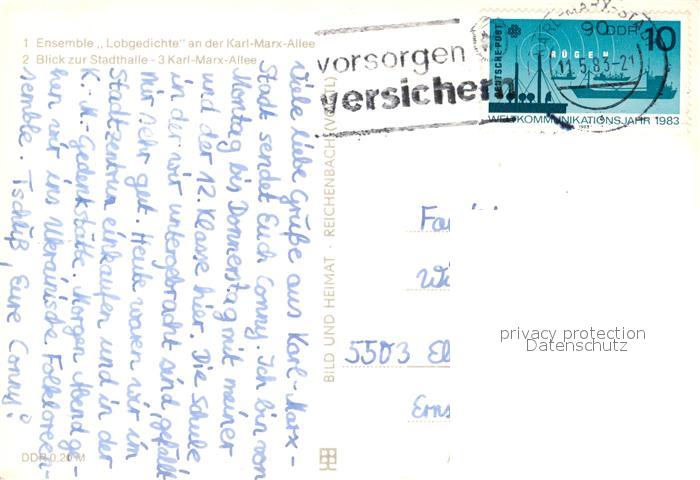 1 Ensemble „Lobgedichte" an der Karl-Marx-Allee
2 Blick zur Stadthalle - 3 Karl-Marx-Allee
Viele liebe Grüße aus Karl-Marx-
Stadt sendet Euch Conny. Ich bin von
Montag bis Donnerstag mit meiner
und der 12. Klasse hier. Die Schule
in der wir untergebracht sind, gefällt
mir sehr gut. Heute waren wir im
Stadtzentrum einkaufen und in der
K.-M.-Gedenkstätte. Morgen Abend ge-
hen wir ins Ukrainische Folkloreen-
semble. Tschüß, Eure Conny!
DDR 0,20 M
BILD UND HEIMAT · REICHENBACH (VOGTL)
vorsorgen
versichern...
90
11.5.83-21
DEUTSCHE POST
DDR 10
RÜGEN
WELTKOMMUNIKATIONSJAHR 1983
1983
5503
privacy protection
Datenschutz